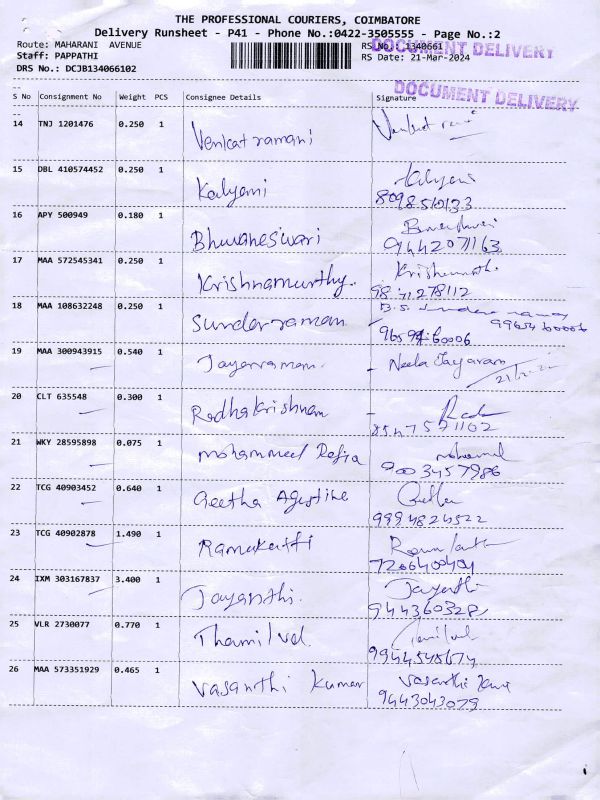 THE PROFESSIONAL COURIERS, COIMBATORE
Delivery Runsheet - P41 - Phone No.:0422-3505555 - Page No.:2
Route: MAHARANI AVENUE
RS No.: 1340661
DOCUMENT DELIVERY
Staff: PAPPATHI
RS Date: 21-Mar-2024
DRS No.: DCJB134066102
DOCUMENT DELIVERY
S No Consignment No Weight PCS Consignee Details Signature
14 TNJ 1201476 0.250 1
Venkat ramani
15 DBL 410574452 0.250 1
Kalyani Kalyani
8098510133
16 APY 500949 0.180 1
Bhuvaneswari
9442071163
17 MAA 572545341 0.250 1
Krishnamurthy.
9871278112
18 MAA 108632248 0.250 1
Sundarraman
9965460006
9659460006
19 MAA 300943915 0.540 1
Jayaraman. Neela Jayaram
20 CLT 635548 0.300 1
Radhakrishnan
8547571102
21 WKY 28595898 0.075 1
mohammed Rafia
9003457986
22 TCG 40903452 0.640 1
Geetha Agustine
9994824522
23 TCG 40902878 1.490 1
Ramakatti
7200400404
24 IXM 303167837 3.400 1
Jayanthi. Jayanthi
9443603282
25 VLR 2730077 0.770 1
Thamilvel.
9944548674
26 MAA 573351929 0.465 1
Vasanthi Kumar Vasanthi
9443043079